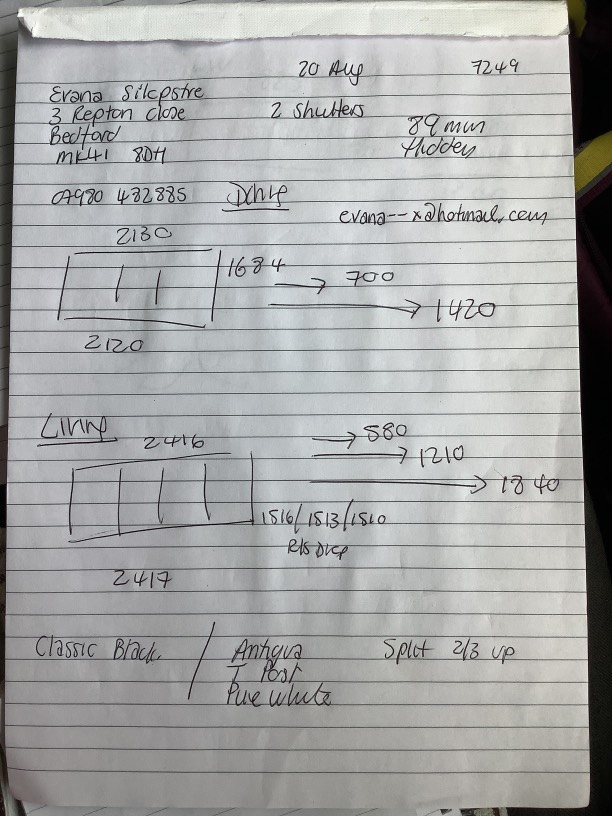 20 Aug 7249
Evana Silcpstre
3 Repton Close 2 Shutters
Bedford 89 mm
MK41 8DH Hidden
07980 482885 Dining
evana--x@hotmail.com
2130
1684 700
1420
2120
Living 580
2416 1210
1840
1516/1513/1510
R/S Dvcp
2417
Classic Black / Antigua Split 2/3 up
T Post
Pure white